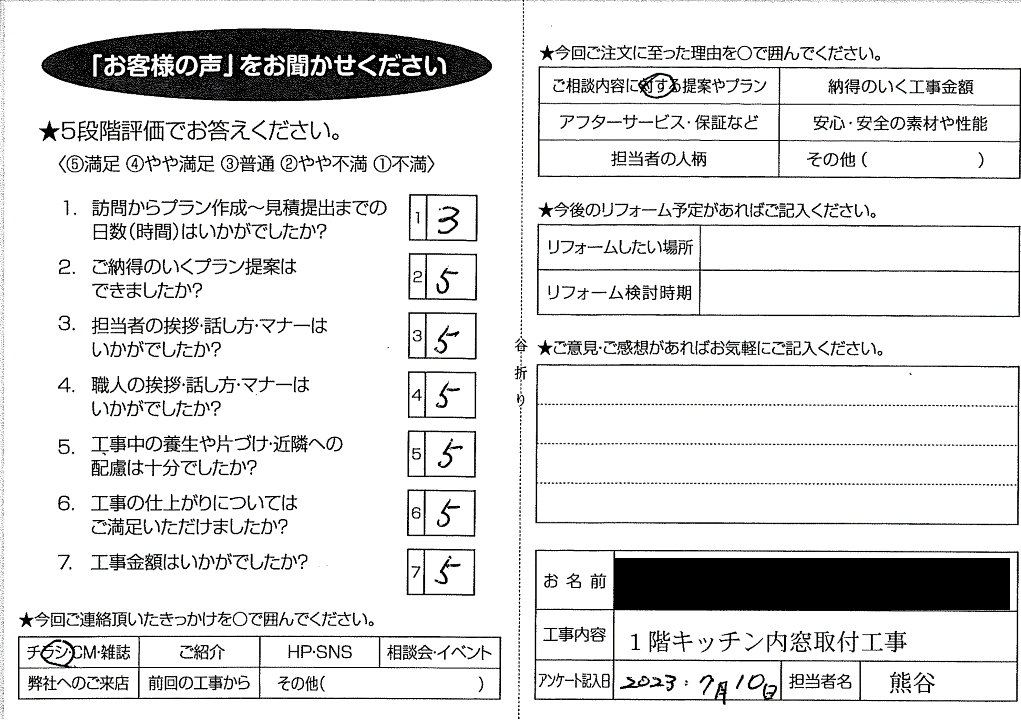 「お客様の声」をお聞かせください
★5段階評価でお答えください。
〈⑤満足 ④やや満足 ③普通 ②やや不満 ①不満〉
1. 訪問からプラン作成〜見積提出までの
日数(時間)はいかがでしたか?
1 3
2. ご納得のいくプラン提案は
できましたか?
2 5
3. 担当者の挨拶・話し方・マナーは
いかがでしたか?
3 5
4. 職人の挨拶・話し方・マナーは
いかがでしたか?
4 5
5. 工事中の養生や片づけ・近隣への
配慮は十分でしたか?
5 5
6. 工事の仕上がりについては
ご満足いただけましたか?
6 5
7. 工事金額はいかがでしたか?
7 5
★今回ご連絡頂いたきっかけを〇で囲んでください。
チラシ・CM・雑誌 ご紹介 HP・SNS 相談会・イベント
弊社へのご来店 前回の工事から その他( )
谷折り
★今回ご注文に至った理由を〇で囲んでください。
ご相談内容に対する提案やプラン 納得のいく工事金額
アフターサービス・保証など 安心・安全の素材や性能
担当者の人柄 その他 ( )
★今後のリフォーム予定があればご記入ください。
リフォームしたい場所
リフォーム検討時期
★ご意見・ご感想があればお気軽にご記入ください。
お名前
工事内容 1階キッチン内窓取付工事
アンケート記入日 2023.7月10日 担当者名 熊谷